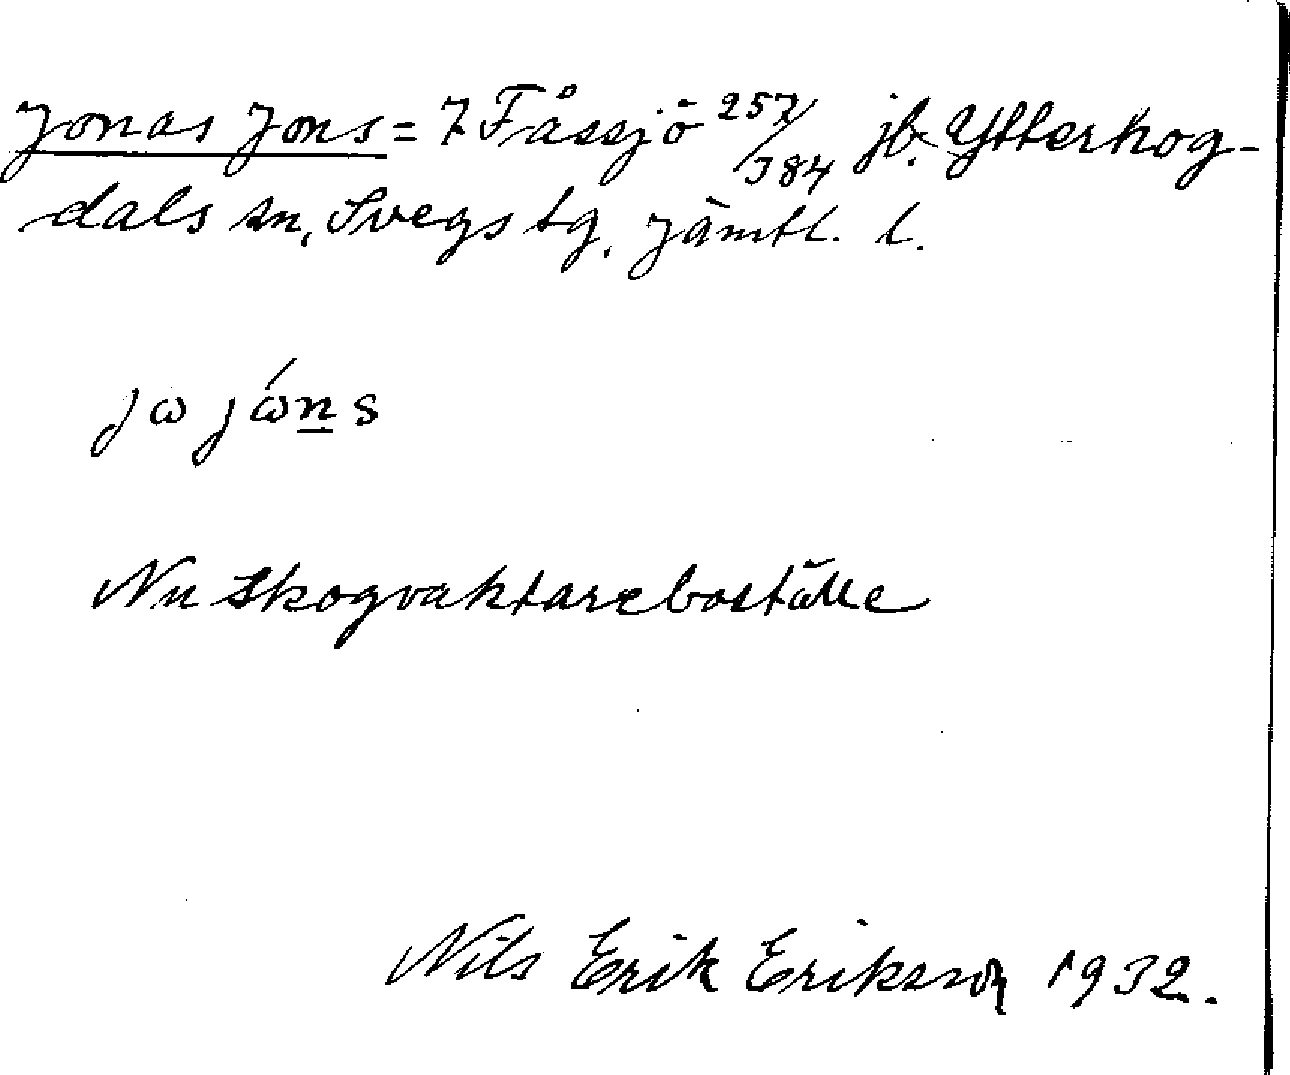 Jonas Jons = 7 Fåssjö 257/384 jb. Ytterhog-
dals sn, Svegs tg, Jämtl. l.
jω jώn̲s
Nu Skogvaktareboställe
Nils Erik Eriksson 1932.